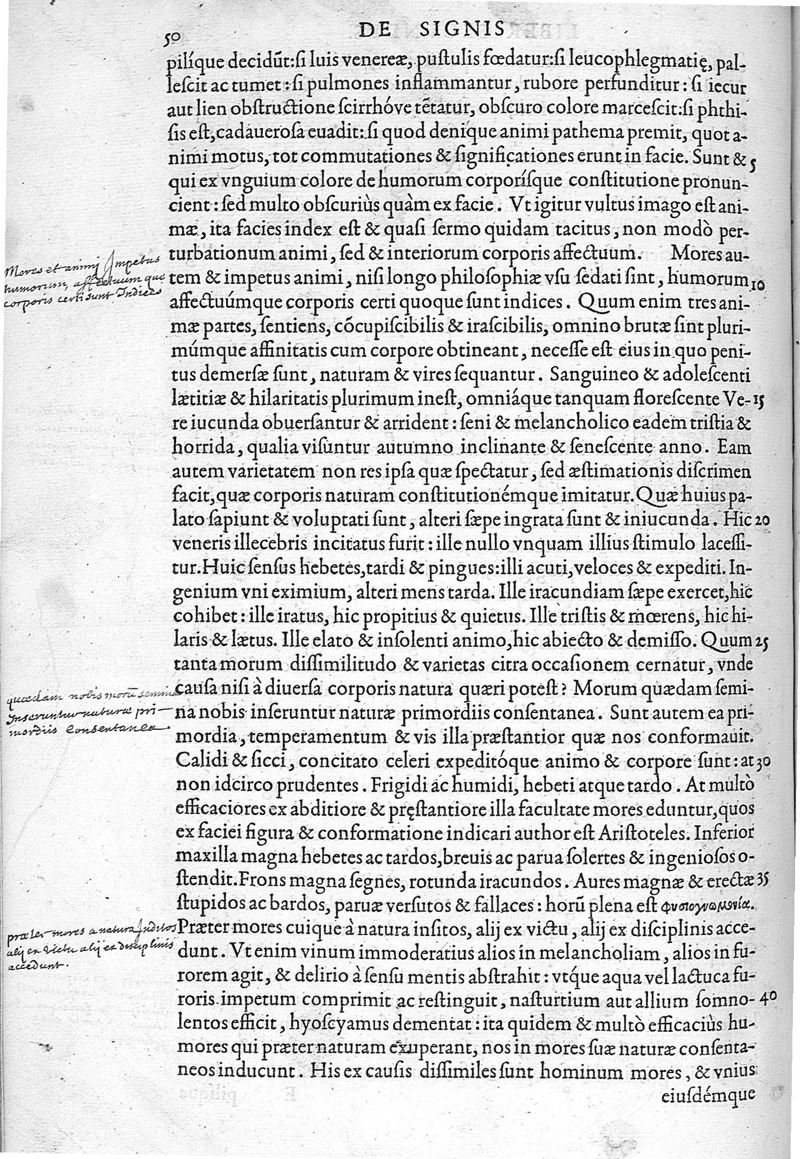 50
DE SIGNIS
pilíque decidũt:ſi luis venereæ, puſtulis fœdatur:ſi leucophlegmatię, pal-
leſcit ac tumet:ſi pulmones inflammantur, rubore perfunditur: ſi iecur
aut lien obſtructione ſcirrhóve tẽtatur, obſcuro colore marceſcit:ſi phthi-
ſis eſt,cadaueroſa euadit:ſi quod denique animi pathema premit, quot a-
nimi motus, tot commutationes & ſignificationes erunt in facie. Sunt & 5
qui ex vnguium colore de humorum corporíſque conſtitutione pronun-
cient: ſed multo obſcuriùs quàm ex facie. Vt igitur vultus imago eſt ani-
mæ, ita facies index eſt & quaſi ſermo quidam tacitus, non modò per-
turbationum animi, ſed & interiorum corporis affectuum. Mores au-
tem & impetus animi, niſi longo philoſophiæ vſu ſedati ſint, humorum 10
affectuúmque corporis certi quoque ſunt indices. Quum enim tres ani-
mæ partes, ſentiens, cõcupiſcibilis & iraſcibilis, omnino brutæ ſint pluri-
múmque affinitatis cum corpore obtineant, neceſſe eſt eius in quo peni-
tus demerſæ ſunt, naturam & vires ſequantur. Sanguineo & adoleſcenti
lætitiæ & hilaritatis plurimum ineſt, omniáque tanquam floreſcente Ve- 15
re iucunda obuerſantur & arrident: ſeni & melancholico eadem triſtia &
horrida, qualia viſuntur autumno inclinante & ſeneſcente anno. Eam
autem varietatem non res ipſa quæ ſpectatur, ſed æſtimationis diſcrimen
facit,quæ corporis naturam conſtitutionémque imitatur.Quæ huius pa-
lato ſapiunt & voluptati ſunt, alteri ſæpe ingrata ſunt & iniucunda. Hic 20
veneris illecebris incitatus furit: ille nullo vnquam illius ſtimulo laceſſi-
tur.Huic ſenſus hebetes,tardi & pingues:illi acuti,veloces & expediti. In-
genium vni eximium, alteri mens tarda. Ille iracundiam ſæpe exercet,hic
cohibet: ille iratus, hic propitius & quietus. Ille triſtis & mœrens, hic hi-
laris & lætus. Ille elato & inſolenti animo,hic abiecto & demiſſo. Quum 25
tanta morum diſſimilitudo & varietas citra occaſionem cernatur, vnde
cauſa niſi à diuerſa corporis natura quæri poteſt? Morum quædam ſemi-
na nobis inſeruntur naturæ primordiis conſentanea. Sunt autem ea pri-
mordia, temperamentum & vis illa præſtantior quæ nos conformauit.
Calidi & ſicci, concitato celeri expeditóque animo & corpore ſunt: at 30
non idcirco prudentes. Frigidi ac humidi, hebeti atque tardo. At multò
efficaciores ex abditiore & pręſtantiore illa facultate mores eduntur,quos
ex faciei figura & conformatione indicari author eſt Ariſtoteles. Inferior
maxilla magna hebetes ac tardos,breuis ac parua ſolertes & ingenioſos o-
ſtendit.Frons magna ſegnes, rotunda iracundos. Aures magnæ & erectæ 35
ſtupidos ac bardos, paruæ verſutos & fallaces: horũ plena eſt φυσιογνωμονία.
Præter mores cuique à natura inſitos, alij ex victu, alij ex diſciplinis acce-
dunt. Vt enim vinum immoderatius alios in melancholiam, alios in fu-
rorem agit, & delirio à ſenſu mentis abſtrahit: vtque aqua vel lactuca fu-
roris impetum comprimit ac reſtinguit, naſturtium aut allium ſomno- 40
lentos efficit, hyoſcyamus dementat: ita quidem & multò efficaciùs hu-
mores qui præter naturam exuperant, nos in mores ſuæ naturæ conſenta-
neos inducunt. His ex cauſis diſſimiles ſunt hominum mores, & vnius
eiuſdémque
Mores et animi Impetus
humorum, affectuum que
corporis certi sunt Indices
quædam nobis morũ semina
Inseruntur naturæ pri-
mordiis consentanea.
præter mores a natura Insitos
alij ex victu alij ex disciplinis
accedunt.